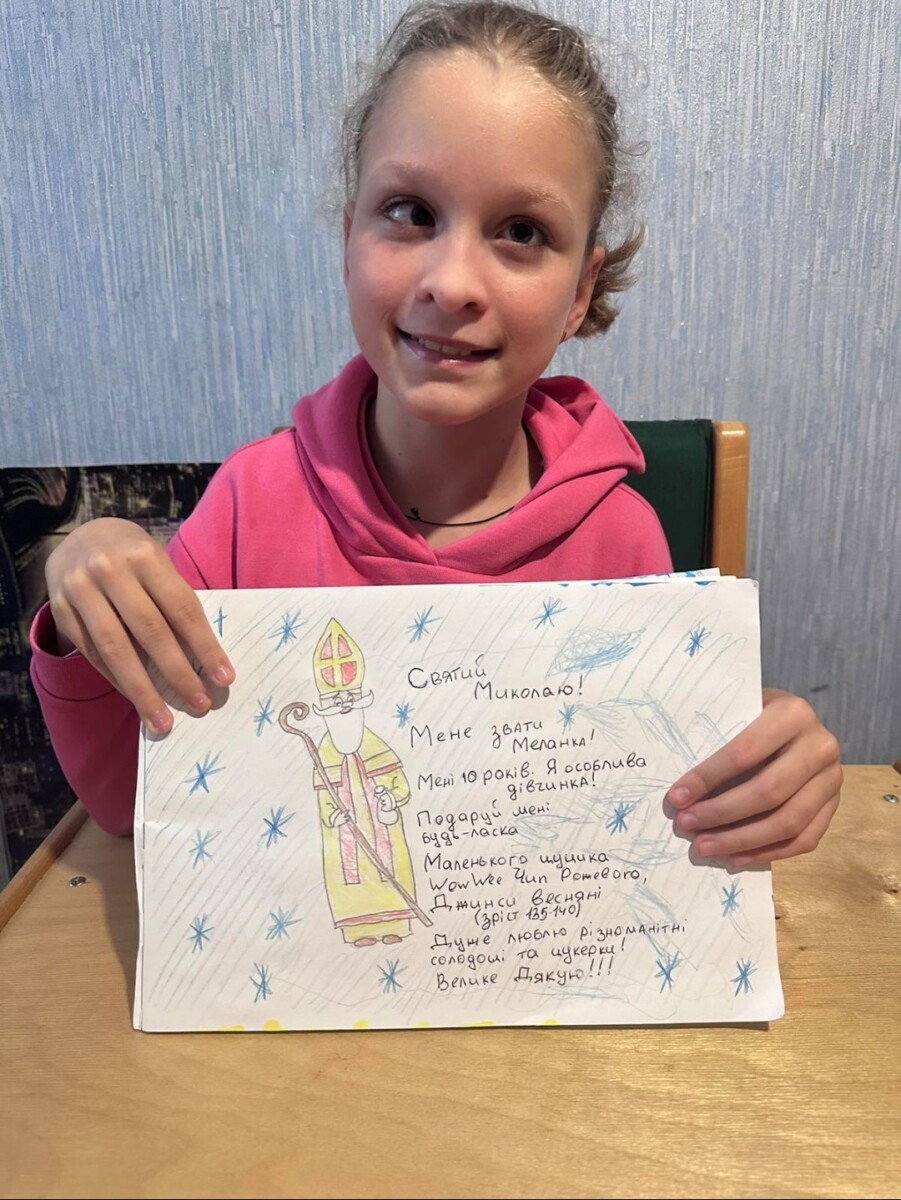 Святий
Миколаю!
Мене звати
Меланка!
Мені 10 років. Я особлива
дівчинка!
Подаруй мені
будь-ласка
Маленького щуцика
WowWee Чип Рожевого,
Джинси весняні
(зріст 135-140)
Дуже люблю різноманітні
солодощі та цукерки!
Велике Дякую!!!